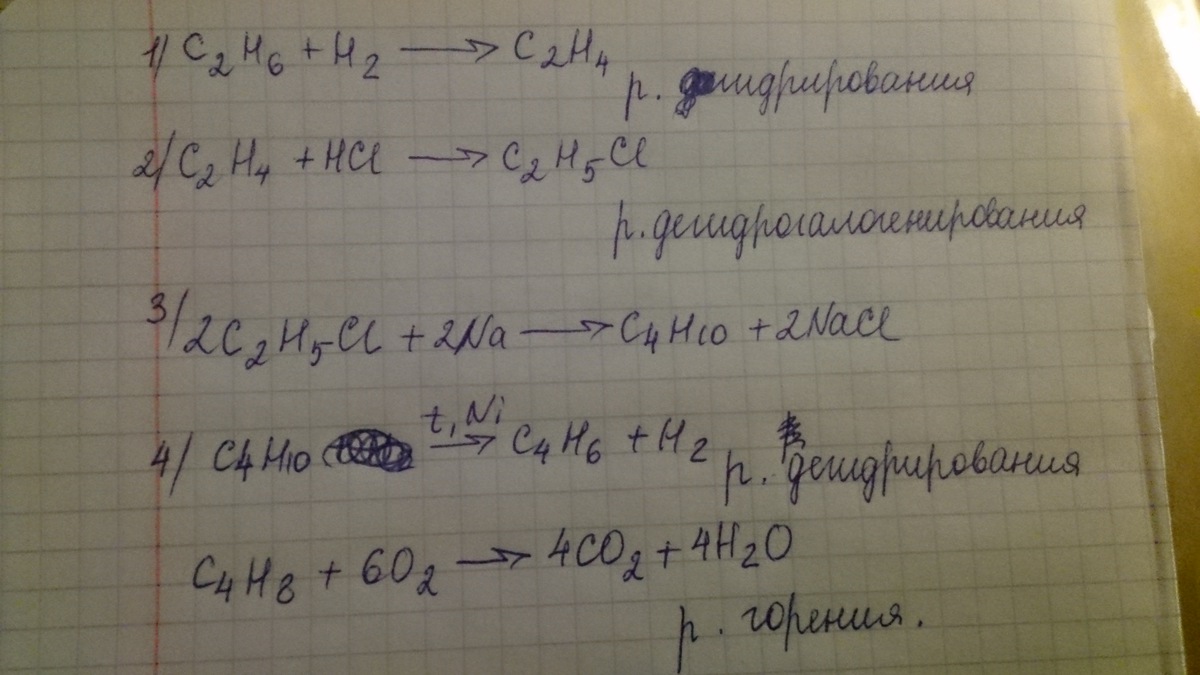 1) C₂H₆ + H₂ ⟶ C₂H₄
р. дегидрирования
2) C₂H₄ + HCl ⟶ C₂H₅Cl
р. дегидрогалогенирования
3) 2C₂H₅Cl + 2Na ⟶ C₄H₁₀ + 2NaCl
t, Ni
4) C₄H₁₀ ⟶ C₄H₆ + H₂
р. дегидрирования
C₄H₈ + 6O₂ ⟶ 4CO₂ + 4H₂O
р. горения.